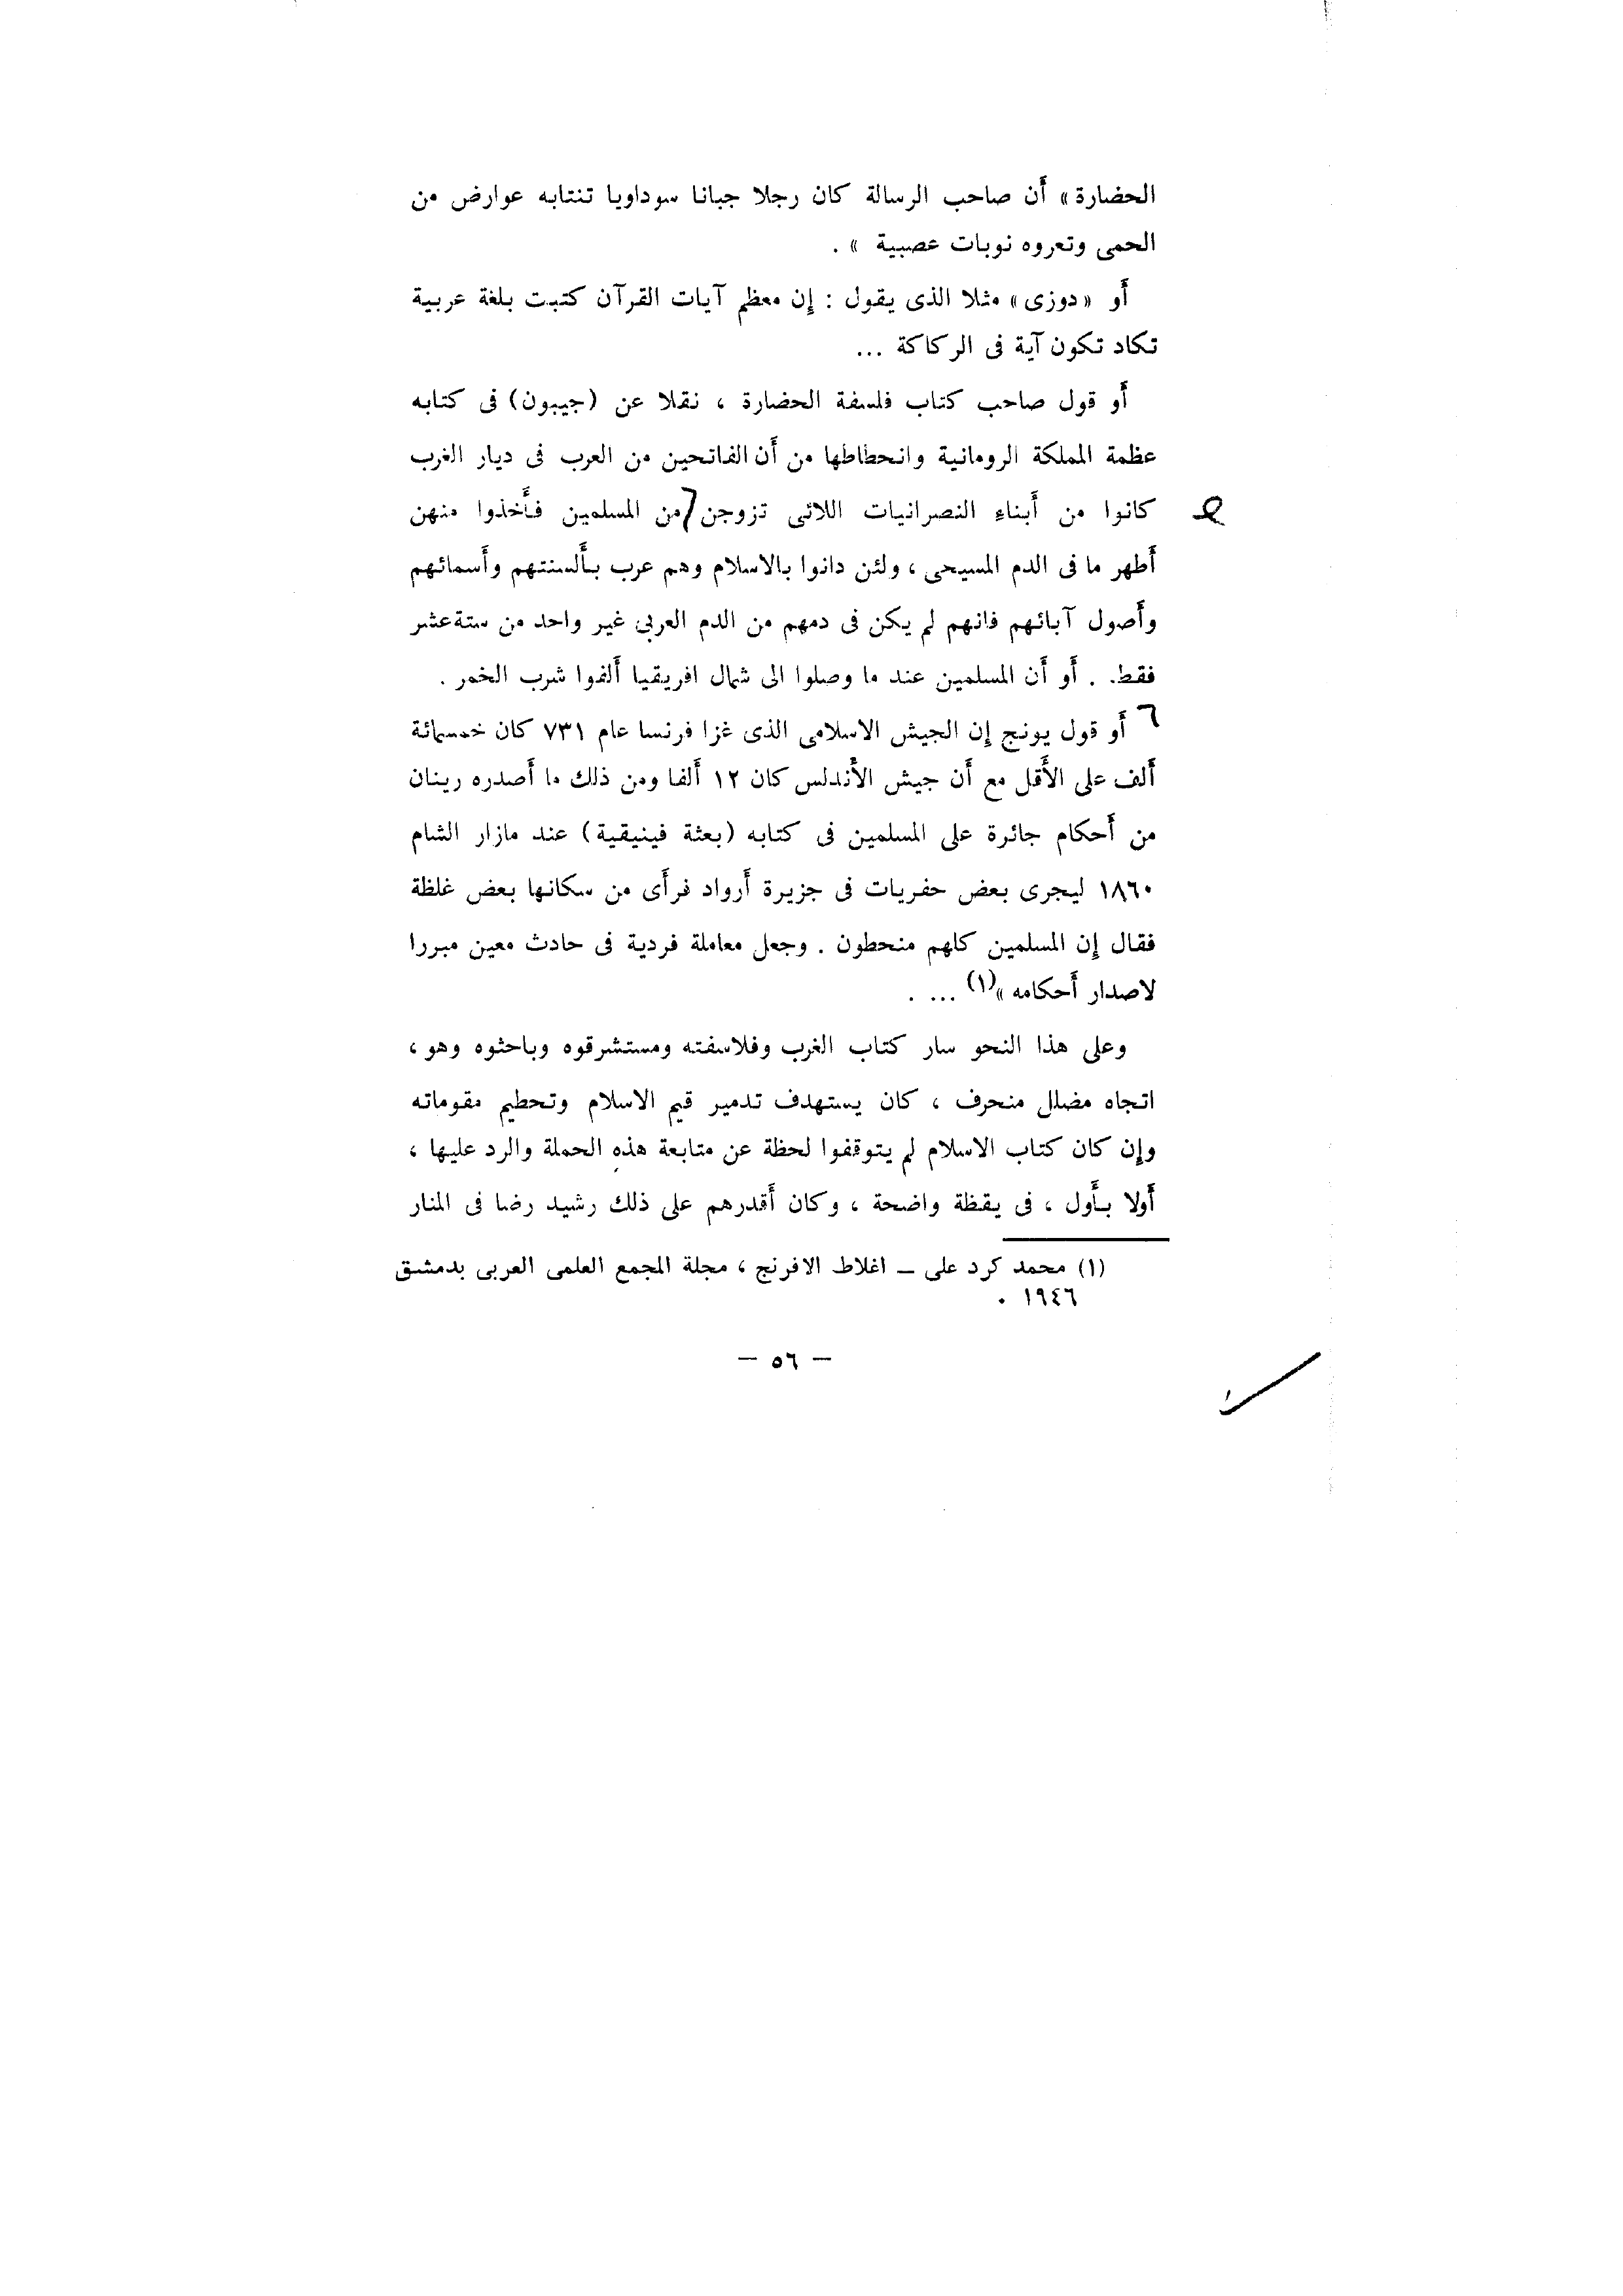 الحضارة» أَن صاحب الرسالة كان رجلا جبانا سوداويا تنتابه عوارض من
الحمى وتعروه نوبات عصبية » .
أَو «دوزى» مثلا الذى يقول : إن معظم آيات القرآن كتبت بلغة عربية
تكاد تكون آية فى الركاكة ...
أَو قول صاحب كتاب فلسفة الحضارة ، نقلا عن (جيبون) فى كتابه
عظمة المملكة الرومانية وانحطاطها من أَن الفاتحين من العرب فى ديار الغرب
كانوا من أَبناءِ النصرانيات اللائى تزوجن من المسلمين فأَخذوا منهن
أَطهر ما فى الدم المسيحى ، ولئن دانوا بالاسلام وهم عرب بأَلسنتهم وأَسمائهم
وأَصول آبائهم فانهم لم يكن فى دمهم من الدم العربى غير واحد من ستةعشر
فقط . أَو أَن المسلمين عند ما وصلوا الى شمال افريقيا أَلفوا شرب الخمر .
أَو قول يونج إن الجيش الاسلامى الذى غزا فرنسا عام ٧٣١ كان خمسمائة
أَلف على الأَقل مع أَن جيش الأَندلس كان ١٢ أَلفا ومن ذلك ما أَصدره رينان
من أَحكام جائرة على المسلمين فى كتابه (بعثة فينيقية) عند مازار الشام
١٨٦٠ ليجرى بعض حفريات فى جزيرة أَرواد فرأَى من سكانها بعض غلظة
فقال إن المسلمين كلهم منحطون . وجعل معاملة فردية فى حادث معين مبررا
لاصدار أَحكامه »(١) ... .
وعلى هذا النحو سار كتاب الغرب وفلاسفته ومستشرقوه وباحثوه وهو ،
اتجاه مضلل منحرف ، كان يستهدف تدمير قيم الاسلام وتحطيم مقوماته
وإن كان كتاب الاسلام لم يتوقفوا لحظة عن متابعة هذه الحملة والرد عليها ،
أَولا بأَول ، فى يقظة واضحة ، وكان أَقدرهم على ذلك رشيد رضا فى المنار
(١) محمد كرد على – اغلاط الافرنج ، مجلة المجمع العلمى العربى بدمشق
١٩٤٦ .
– ٥٦ –